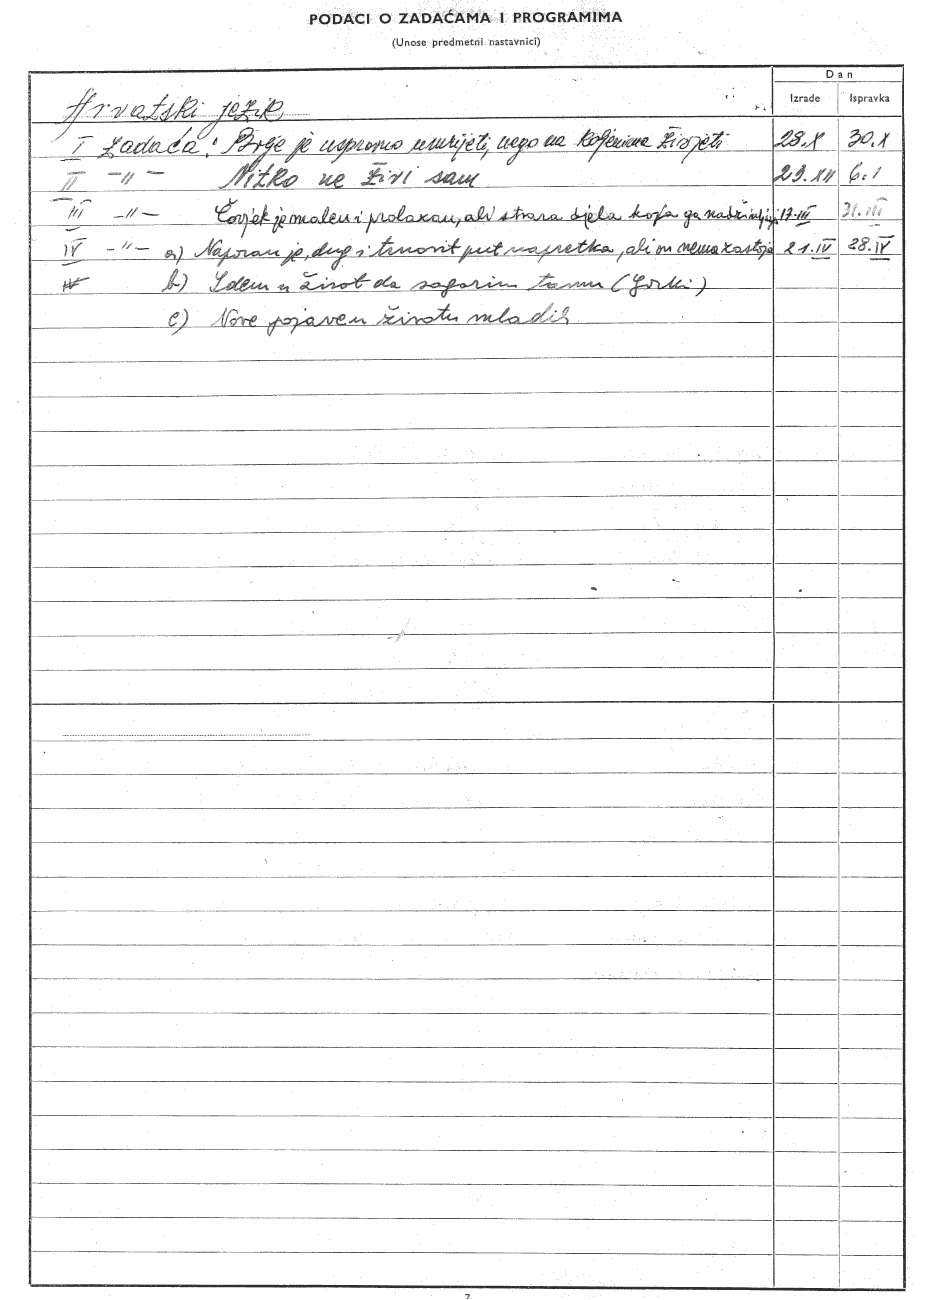 PODACI O ZADAĆAMA I PROGRAMIMA
(Unose predmetni nastavnici)
Dan
Izrade Ispravka
Hrvatski jezik
I zadaća: Bolje je uspravno umrijeti, nego na koljenima živjeti 28.X 30.X
II -"- Nitko ne živi sam 29.XII 6.I
III -"- Čovjek je malen i prolazan, ali stvara djela koja ga nadživljuju 17.III 31.III
IV -"- a) Naporan je, dug i trnovit put napretka, ali on nema zastoja 21.IV 28.IV
b) Idem u život da sagorim tamu (Gorki)
c) Nove pojave u životu mladih
7